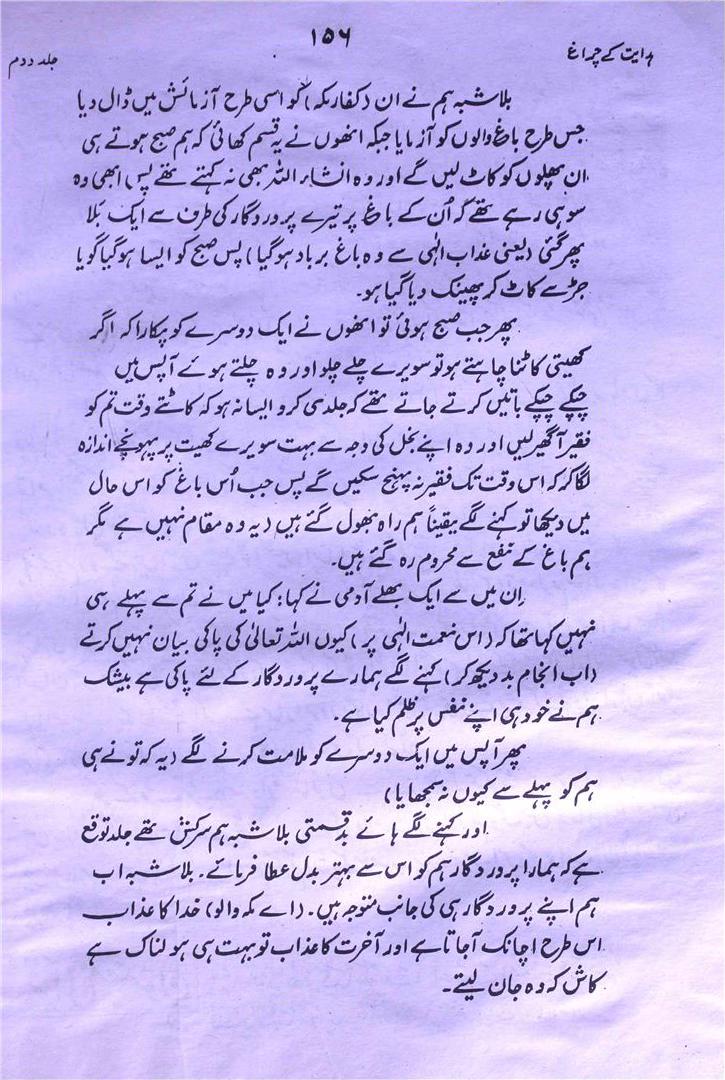 ہدایت کے چراغ
۱۵۶
جلد دوم
بلاشبہ ہم نے ان (کفار مکہ) کو اسی طرح آزمائش میں ڈال دیا
جس طرح باغ والوں کو آزمایا جبکہ انھوں نے یہ قسم کھائی کہ ہم صبح ہوتے ہی
ان پھلوں کو کاٹ لیں گے اور وہ انشاء اللہ بھی نہ کہتے تھے پس ابھی وہ
سو ہی رہے تھے کہ اُن کے باغ پر تیرے پروردگار کی طرف سے ایک بَلا
پھر گئی (یعنی عذاب الٰہی سے وہ باغ برباد ہو گیا) پس صبح کو ایسا ہو گیا گویا
جڑ سے کاٹ کر پھینک دیا گیا ہو۔
پھر جب صبح ہوئی تو انھوں نے ایک دوسرے کو پکارا کہ اگر
کھیتی کاٹنا چاہتے ہو تو سویرے چلے چلو اور وہ چلتے ہوئے آپس میں
چپکے چپکے باتیں کرتے جاتے تھے کہ جلدی کرو ایسا نہ ہو کہ کاٹتے وقت تم کو
فقیر آ گھیر لیں اور وہ اپنے بخل کی وجہ سے بہت سویرے کھیت پر پہونچے اندازہ
لگا کر کہ اس وقت تک فقیر نہ پہنچ سکیں گے پس جب اُس باغ کو اس حال
میں دیکھا تو کہنے لگے یقیناً ہم راہ بھول گئے ہیں (یہ وہ مقام نہیں ہے مگر
ہم باغ کے نفع سے محروم رہ گئے ہیں۔
اِن میں سے ایک بھلے آدمی نے کہا؛ کیا میں نے تم سے پہلے ہی
نہیں کہا تھا کہ (اس نعمت الٰہی پر) کیوں اللہ تعالیٰ کی پاکی بیان نہیں کرتے
(اب انجام بد دیکھ کر) کہنے لگے ہمارے پروردگار کے لئے پاکی ہے بیشک
ہم نے خود ہی اپنے نفس پر ظلم کیا ہے۔
پھر آپس میں ایک دوسرے کو ملامت کرنے لگے (یہ کہ تونے ہی
ہم کو پہلے سے کیوں نہ سمجھایا)
اور کہنے لگے ہائے بدقسمتی بلاشبہ ہم سرکش تھے جلد توقع
ہے کہ ہمارا پروردگار ہم کو اس سے بہتر بدل عطا فرمائے۔ بلاشبہ اب
ہم اپنے پروردگار ہی کی جانب متوجہ ہیں۔ (اے مکہ والو) خدا کا عذاب
اس طرح اچانک آجاتا ہے اور آخرت کا عذاب تو بہت ہی ہولناک ہے
کاش کہ وہ جان لیتے۔